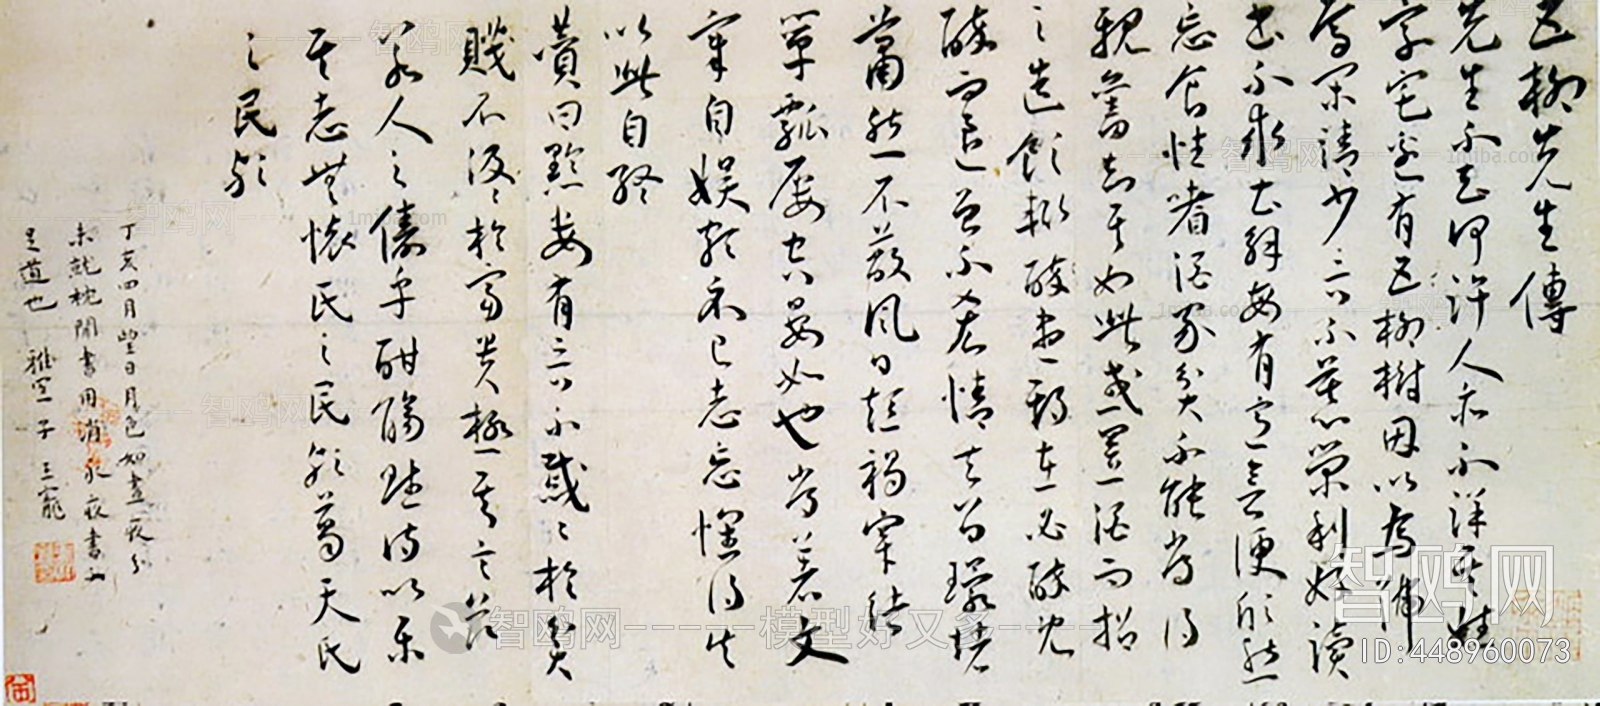 五柳先生傳
先生不知何許人亦不詳其姓
字宅邊有五柳樹因以為號
焉閑靖少言不慕榮利好讀
書不求甚解每有會意便欣然
忘食性嗜酒家貧不能常得
親舊知其如此或置酒而招
之造飲輒醉盡期在必醉既
醉而退曾不吝情去留環堵
蕭然不蔽風日短褐穿結
簞瓢屢空晏如也常著文
章自娛頗示己志忘懷得失
以此自終
贊曰黔婁有言不戚〻於貧
賤不汲〻於富貴極其言茲
若人之儔乎酣觴賦詩以樂
其志無懷氏之民歟葛天氏
之民歟
丁亥四月望日月色如晝夜分
未就枕閒書用消永夜書
是道也 雅宜子王寵
智鸥网
ID:448960073
智鸥网------模型好又多------
1miba.com